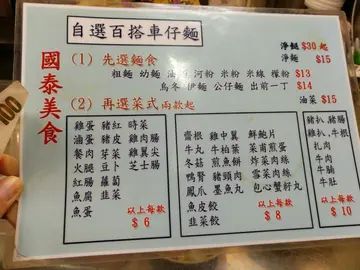 自選百搭車仔麵
淨餸 $30起
淨麵 $15
國泰美食
(1) 先選麵食
粗麵 幼麵 油麵 河粉 米粉 米線 檬粉 $13
烏冬 伊麵 公仔麵 出前一丁 $14
(2) 再選菜式 兩款起
油菜 $15
雞蛋 豬紅 時菜
滷蛋 豬皮 雞肉腸
餐肉 芽菜 雞翼尖
火腿 豆卜 芝士腸
紅腸 蘿蔔
魚腐 韮菜
魚蛋
以上每款
$ 6
齋根 雞中翼 鮮鮑片
牛丸 牛柏葉 菜甫煎蛋
冬菇 煎魚餅 炸菜肉絲
鴨腎 豬頭肉 雪菜肉絲
鳳爪 墨魚丸 包心蟹籽丸
魚皮餃
韮菜餃
以上每款
$ 8
豬扒 雞扒
牛腩
扎肉
牛肉
牛腸
牛肚
以上每款
$ 10
100